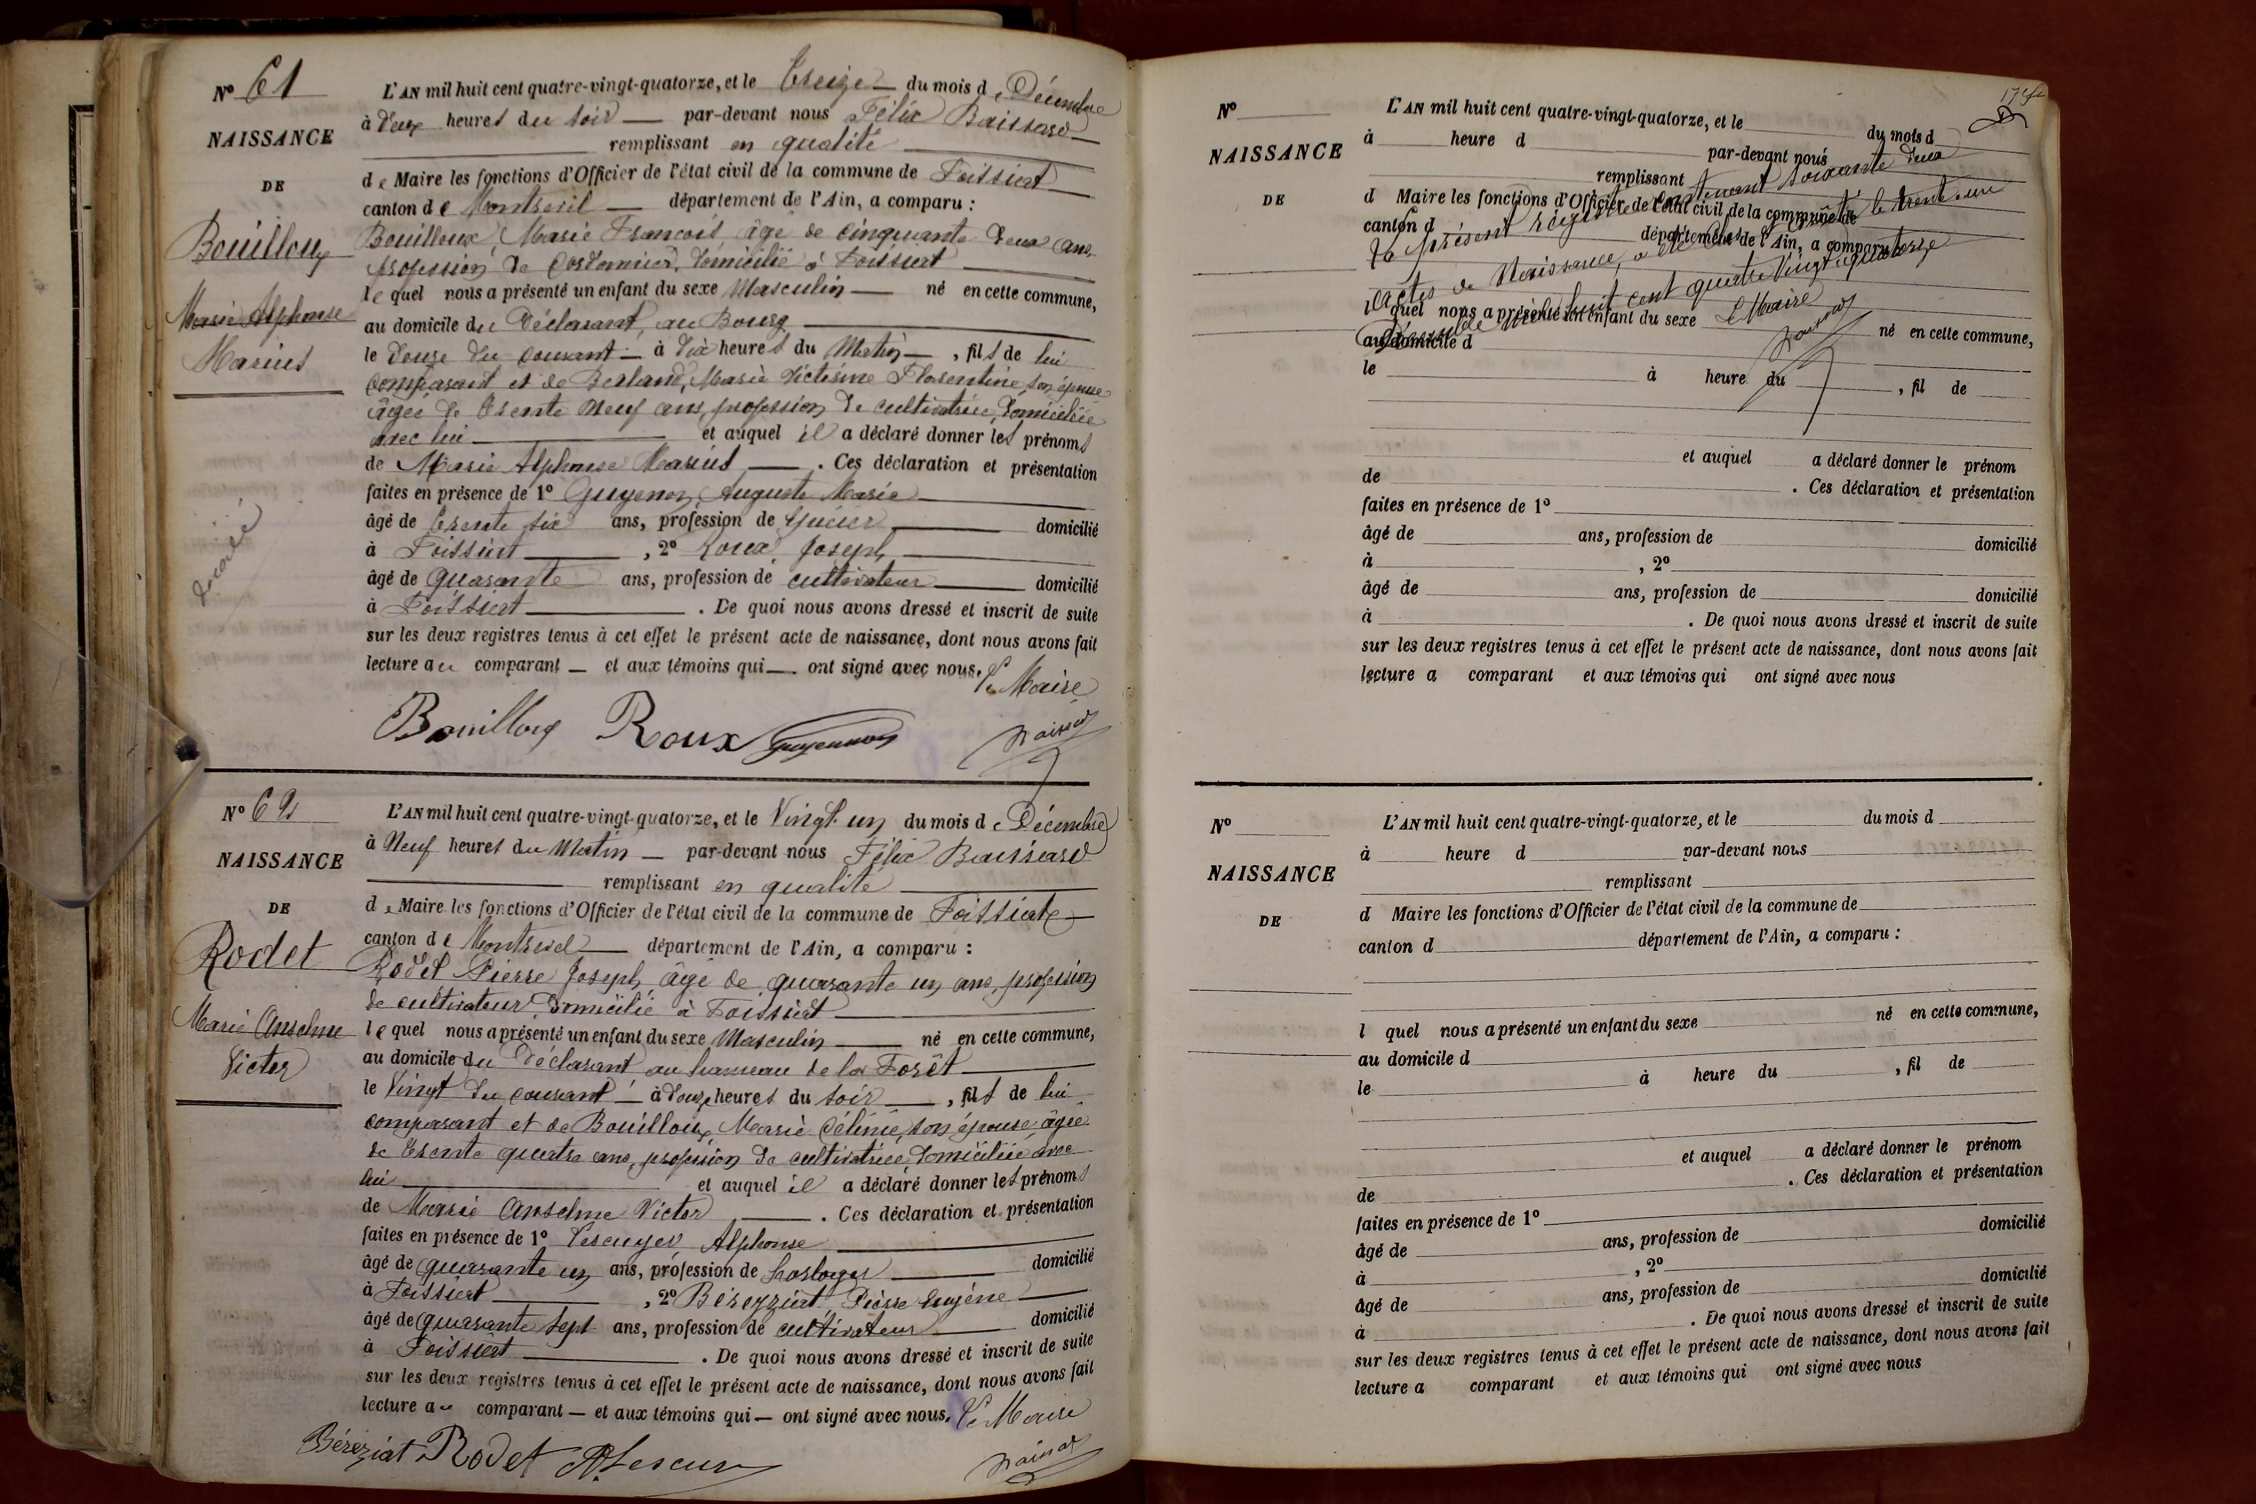 N° 61
NAISSANCE
DE
Bouilloux
Marie Alphonse
Marius
décédé
L'AN mil huit cent quatre-vingt-quatorze, et le Treize du mois de Décembre
à Deux heures du soir par-devant nous Félix Baissard
remplissant en qualité
de Maire les fonctions d'Officier de l'état civil de la commune de Foissiat
canton de Montrevel département de l'Ain, a comparu :
Bouilloux Marie François âgé de cinquante deux ans,
profession de Cordonnier, domicilié à Foissiat
lequel nous a présenté un enfant du sexe Masculin né en cette commune,
au domicile du Déclarant, au Bourg
le Douze du courant à dix heures du Matin, fils de lui
comparant et de Berland, Marie Victorine Florentine, son épouse
âgée de Trente neuf ans, profession de cultivatrice, domiciliée
avec lui et auquel il a déclaré donner les prénoms
de Marie Alphonse Marius. Ces déclaration et présentation
faites en présence de 1° Guyennon Auguste Marie
âgé de Trente six ans, profession de domicilié
à Foissiat, 2° Roux Joseph
âgé de Quarante ans, profession de cultivateur domicilié
à Foissiat. De quoi nous avons dressé et inscrit de suite
sur les deux registres tenus à cet effet le présent acte de naissance, dont nous avons fait
lecture au comparant et aux témoins qui ont signé avec nous. Le Maire
Bouilloux Roux Guyennon Baissard
N° 62
NAISSANCE
DE
Rodet
Marie Anselme
Victor
L'AN mil huit cent quatre-vingt-quatorze, et le Vingt un du mois de Décembre
à Neuf heures du Matin par-devant nous Félix Baissard
remplissant en qualité
de Maire les fonctions d'Officier de l'état civil de la commune de Foissiat
canton de Montrevel département de l'Ain, a comparu :
Rodet Pierre Joseph, âgé de quarante un ans, profession
de cultivateur, Domicilié à Foissiat
lequel nous a présenté un enfant du sexe Masculin né en cette commune,
au domicile du Déclarant au hameau de la Forêt
le Vingt du courant à douze heures du soir, fils de lui
comparant et de Bouilloux Marie Célinie, son épouse âgée
de Trente quatre ans, profession de cultivatrice, domiciliée avec
lui et auquel il a déclaré donner les prénoms
de Marie Anselme Victor. Ces déclaration et présentation
faites en présence de 1° Lescuyer Alphonse
âgé de quarante un ans, profession de horloger domicilié
à Foissiat, 2° Béreyziat Pierre Eugène
âgé de quarante sept ans, profession de cultivateur domicilié
à Foissiat. De quoi nous avons dressé et inscrit de suite
sur les deux registres tenus à cet effet le présent acte de naissance, dont nous avons fait
lecture au comparant et aux témoins qui ont signé avec nous. Le Maire
Béréziat Rodet A. Lescuy Baissard
N°
NAISSANCE
DE
L'AN mil huit cent quatre-vingt-quatorze, et le du mois d
à heure d par-devant nous
remplissant
d Maire les fonctions d'Officier de l'état civil de la commune de
canton d département de l'Ain, a comparu :
Le présent registre contenant soixante deux
actes de Naissance, a été clos et arrêté le trente un
Décembre mil huit cent quatre Vingt quatorze
Le Maire
Baissard
l quel nous a présenté un enfant du sexe né en cette commune,
au domicile d
le à heure du, fil de
et auquel a déclaré donner le prénom
de . Ces déclaration et présentation
faites en présence de 1°
âgé de ans, profession de domicilié
à , 2°
âgé de ans, profession de domicilié
à . De quoi nous avons dressé et inscrit de suite
sur les deux registres tenus à cet effet le présent acte de naissance, dont nous avons fait
lecture a comparant et aux témoins qui ont signé avec nous
N°
NAISSANCE
DE
L'AN mil huit cent quatre-vingt-quatorze, et le du mois d
à heure d par-devant nous
remplissant
d Maire les fonctions d'Officier de l'état civil de la commune de
canton d département de l'Ain, a comparu :
l quel nous a présenté un enfant du sexe né en cette commune,
au domicile d
le à heure du , fil de
et auquel a déclaré donner le prénom
de . Ces déclaration et présentation
faites en présence de 1°
âgé de ans, profession de domicilié
à , 2°
âgé de ans, profession de domicilié
à . De quoi nous avons dressé et inscrit de suite
sur les deux registres tenus à cet effet le présent acte de naissance, dont nous avons fait
lecture a comparant et aux témoins qui ont signé avec nous